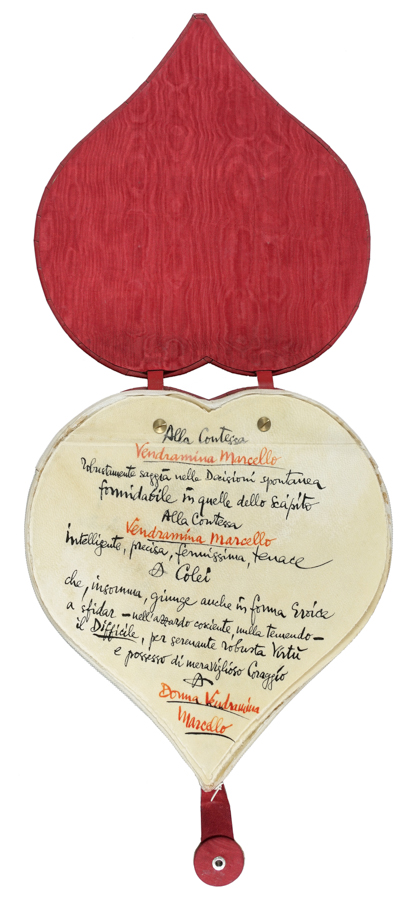 Alla Contessa
Vendramina Marcello
Robustamente saggia nelle Decisioni spontanea
formidabile in quelle dello scàpito
Alla Contessa
Vendramina Marcello
intelligente, precisa, fermissima, tenace
A Colei
che, insomma, giunge anche in forma Eroica
a sfidar - nell'azzardo cosciente, nulla temendo -
il Difficile, per serenante robusta Virtù
e possesso di meraviglioso Coraggio
A
Donna Vendramina
Marcello